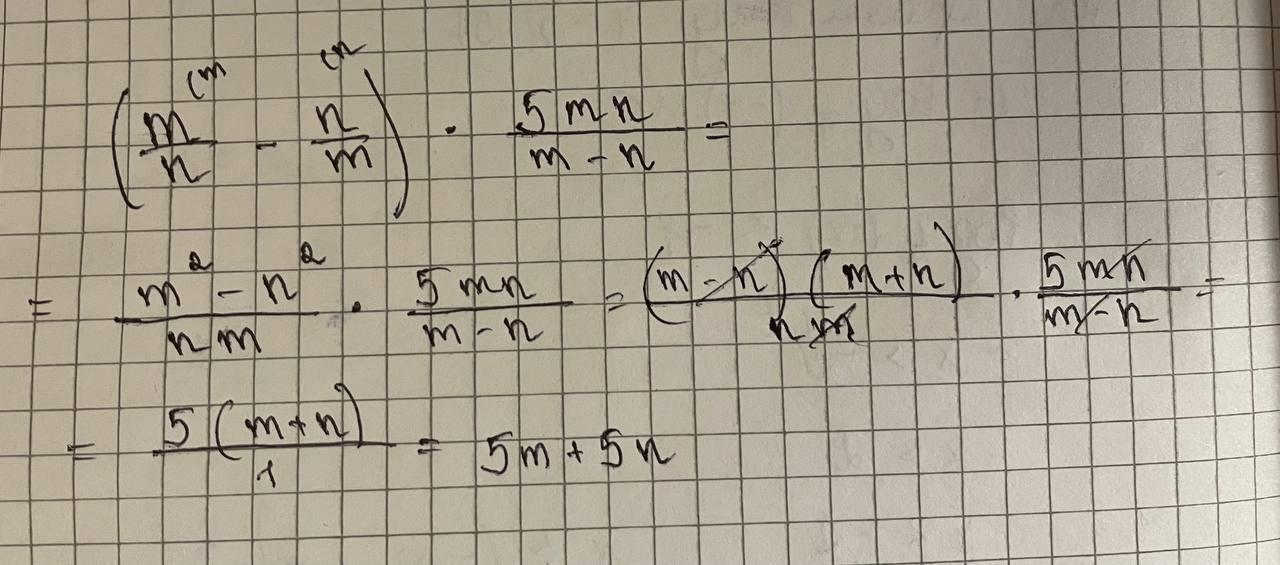 (m/n^(m - n/m^(n) · 5mn/(m-n) =
= (m² - n²)/(nm) · 5mn/(m-n) = (m-n)(m+n)/(nm) · 5mn/(m-n) =
= 5(m+n)/1 = 5m + 5n